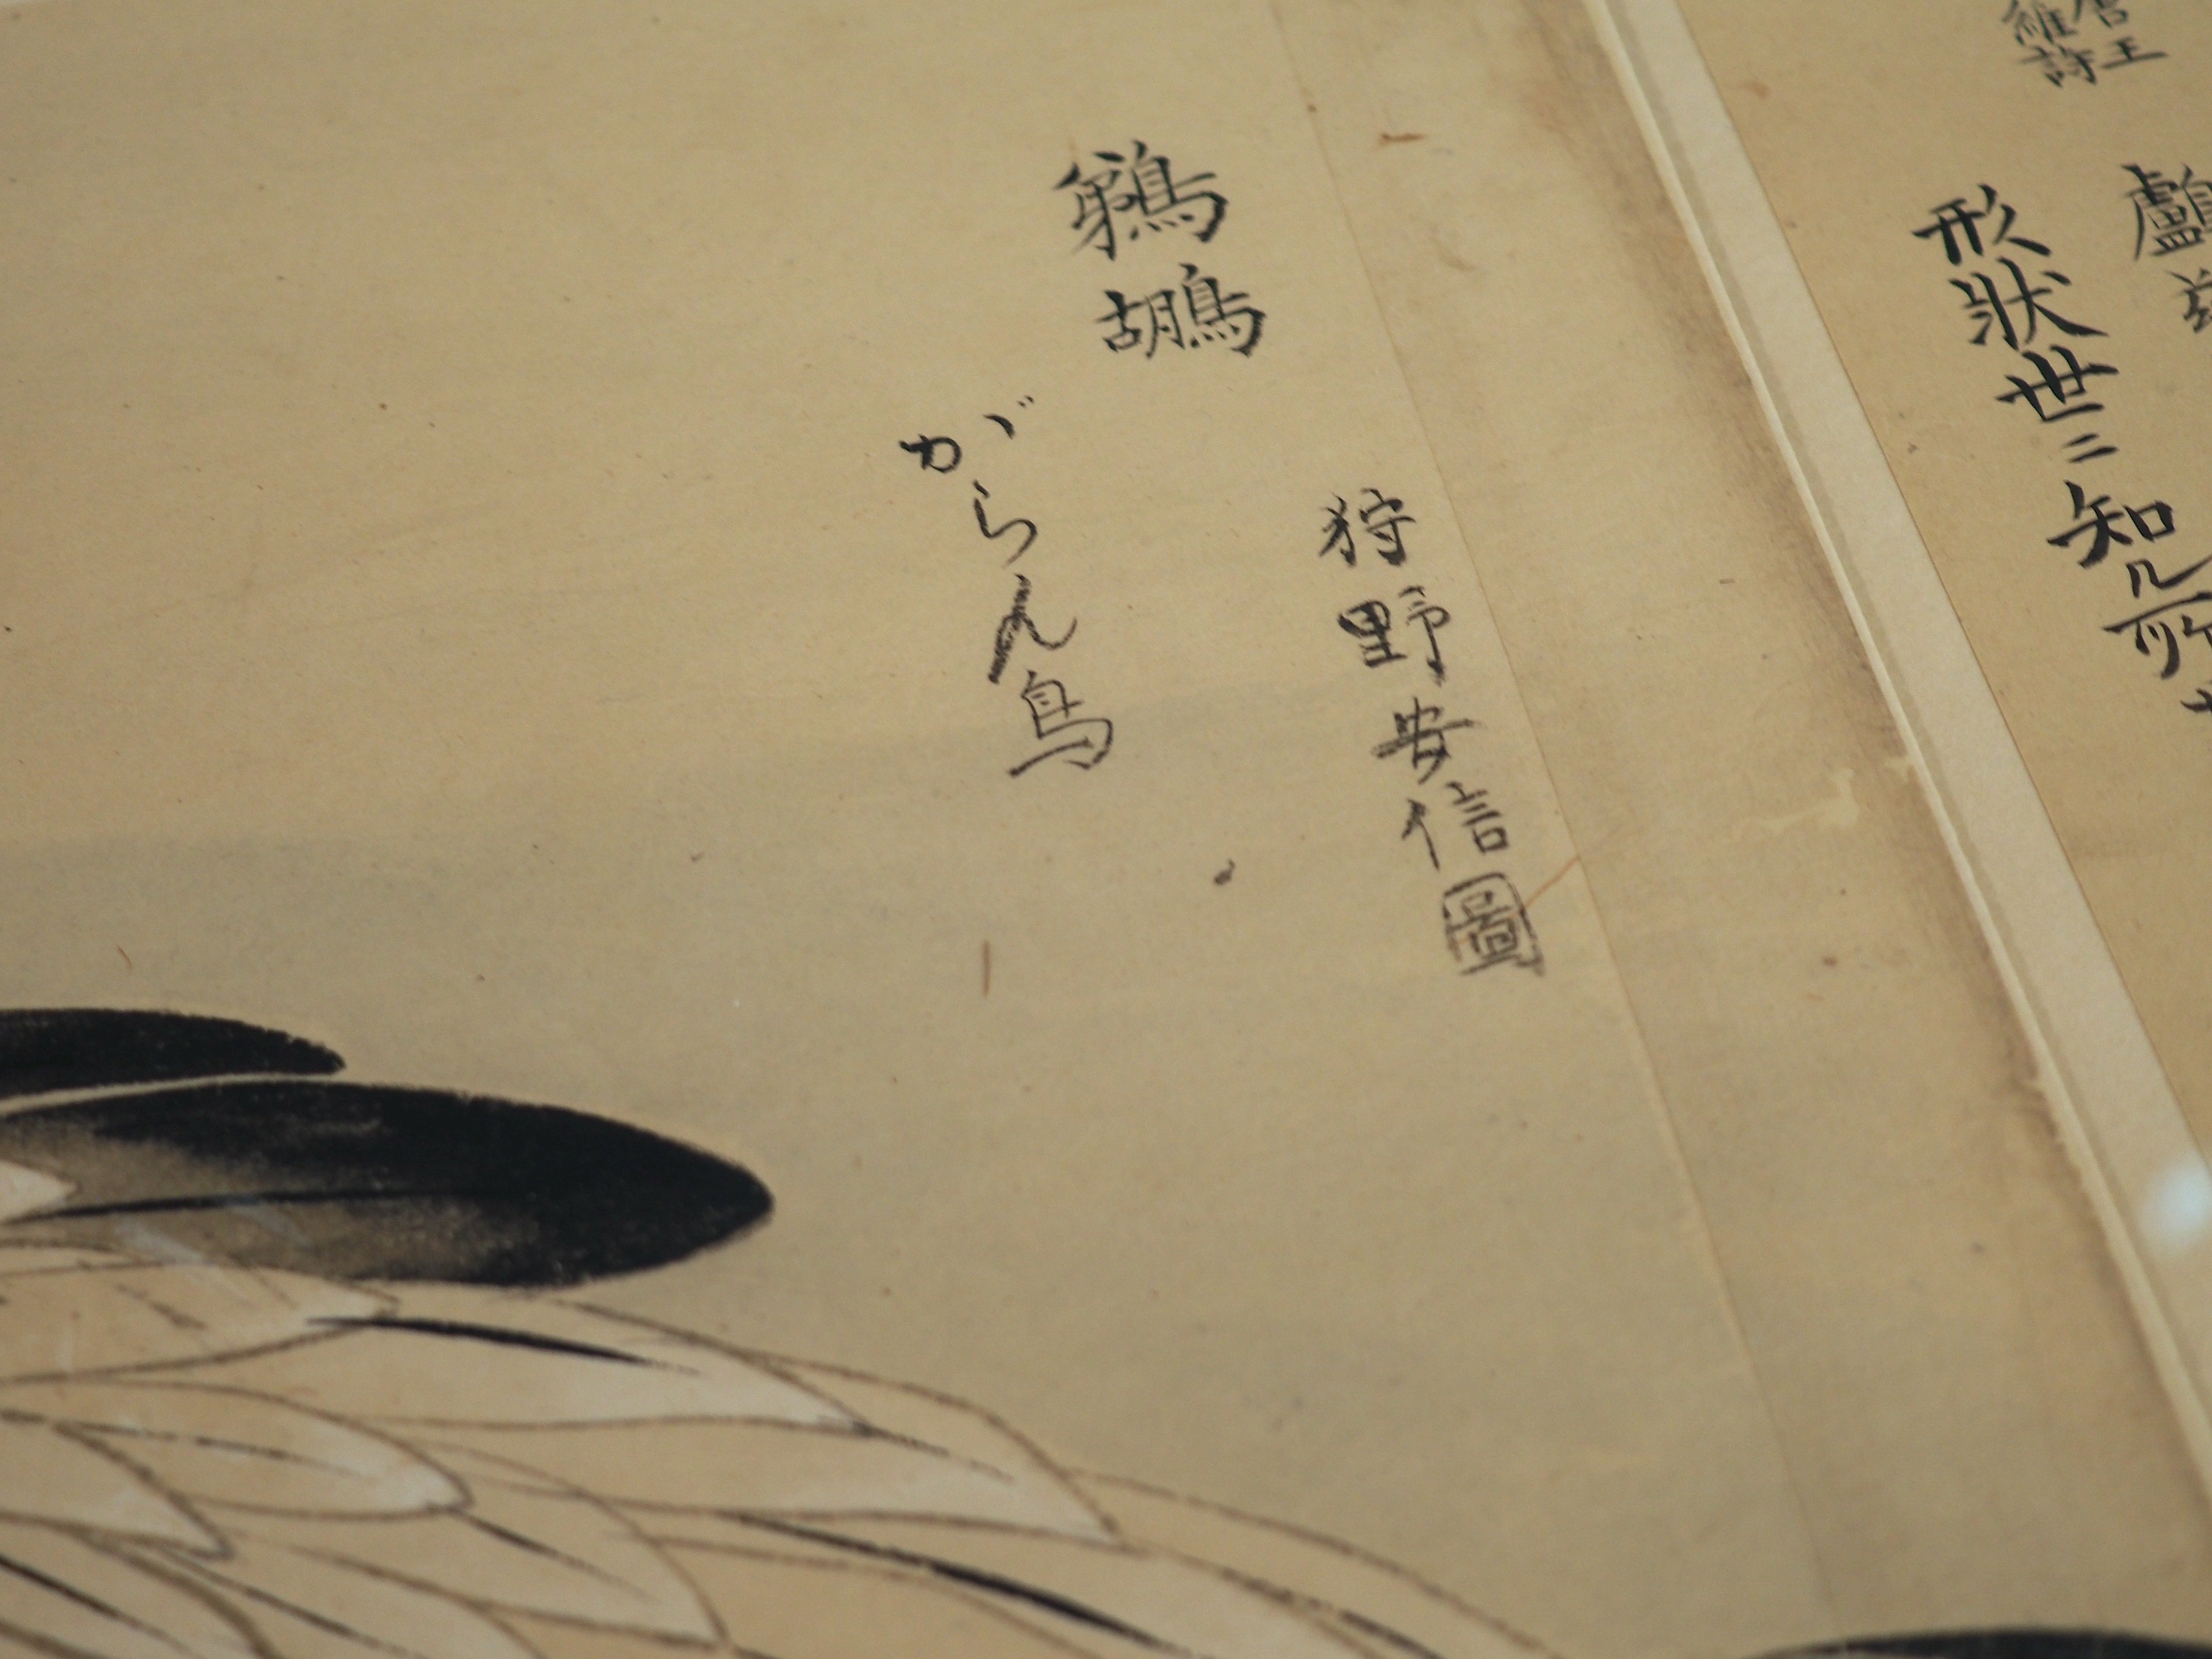 唐王
維詩
鸕
形狀世ニ知ル所
狩野安信圖
鵜鶘
がらん鳥